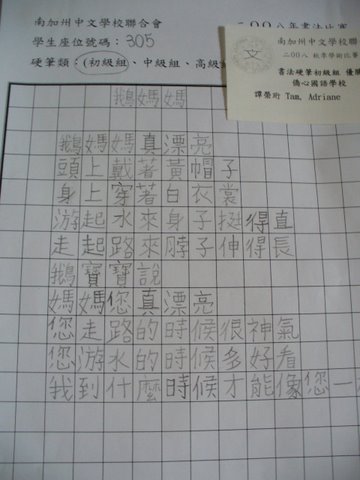 南加州中文學校聯合會
二００八年書法比賽
學生座位號碼：305
硬筆類：(初級組、中級組、高級
南加州中文學校聯
二００八 秋季學術比賽
書法硬筆初級組 優勝
僑心國語學校
譚榮珩 Tam, Adriane
鵝媽媽
鵝媽媽真漂亮
頭上戴著黃帽子
身上穿著白衣裳
游起水來身子挺得直
走起路來脖子伸得長
鵝寶寶說
媽媽您真漂亮
您走路的時候很神氣
您游水的時候多好看
我到什麼時候才能像您一